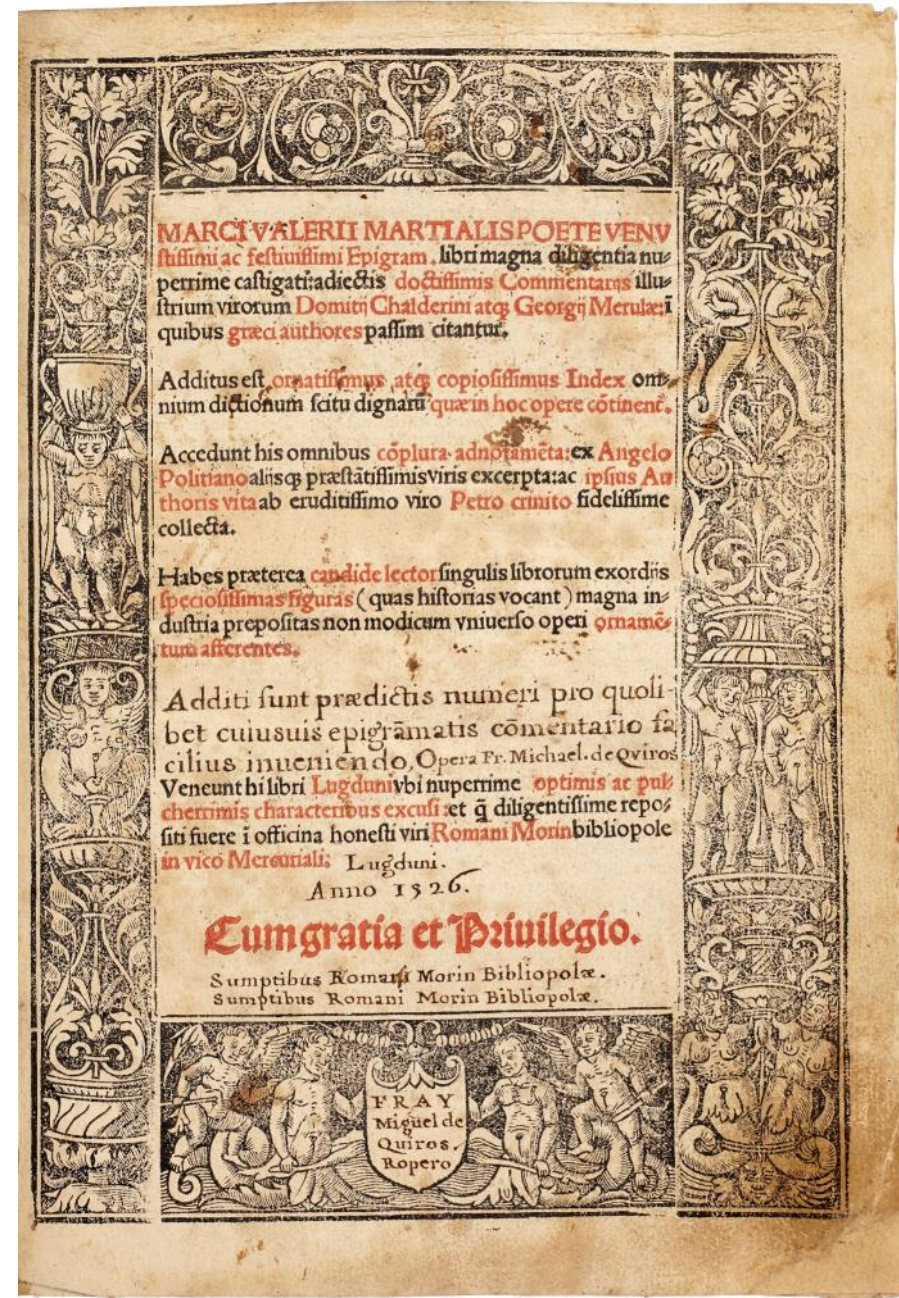 MARCI VALERII MARTIALIS POETE VENU
stissimi ac festiuissimi Epigram. libri magna diligentia nu⸗
perrime castigati:adiectis doctissimis Commentarijs illu⸗
strium virorum Domitij Chalderini atqꝫ Georgij Merulæ:ī
quibus græci authores passim citantur.
Additus est ornatissimus atqꝫ copiosissimus Index om⸗
nium dictionum scitu dignarū quæ in hoc opere cōtinent̄.
Accedunt his omnibus cōplura adnotamēta:ex Angelo
Politiano alijsqꝫ præstātissimis viris excerpta:ac ipsius Au
thoris vita ab eruditissimo viro Petro crinito fidelissime
collecta.
Habes præterea candide lector singulis librorum exordijs
speciosissimas figuras (quas historias vocant) magna in⸗
dustria prepositas non modicum vniuerso operi ornamē⸗
tum afferentes.
Additi sunt prædictis numeri pro quoli-
bet cuiusuis epigrāmatis cōmentario fa
cilius inueniendo, Opera Fr. Michael. de Qviros
Veneunt hi libri Lugduni vbi nuperrime optimis ac pul⸗
cherrimis characteribus excusi :et q̄ diligentissime repo⸗
siti fuere ī officina honesti viri Romani Morin bibliopole
in vico Mercuriali; Lugduni.
Anno 1526.
Cum gratia et Priuilegio.
Sumptibus Romani Morin Bibliopolæ.
Sumptibus Romani Morin Bibliopolæ.
FRAY
Miguel de
Quiros.
Ropero